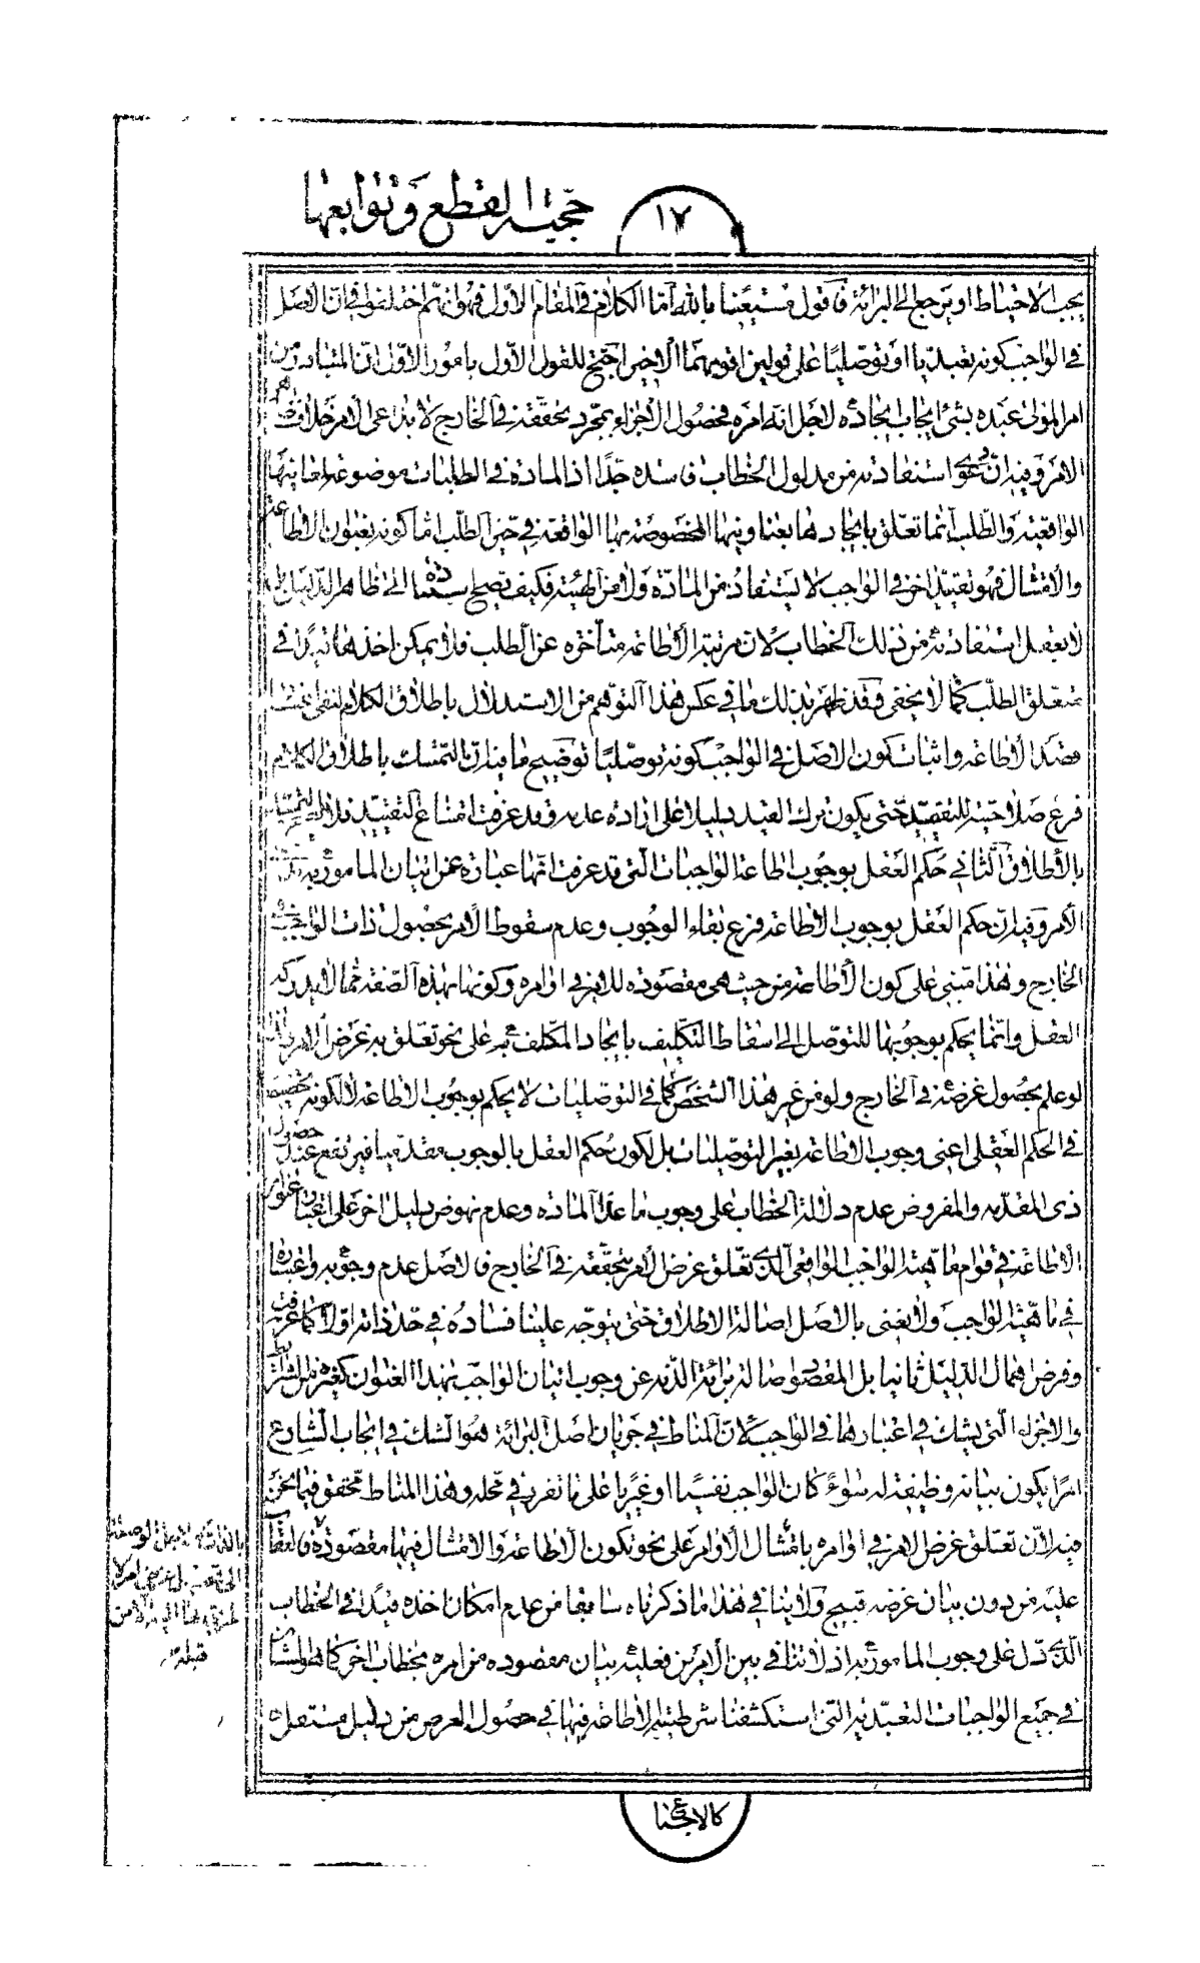 ١٧
حجية القطع وتوابعها
يجب الاحتياط او يرجع الى البرائة فاقول مستعينا بالله اما الكلام في المقام الاول فهو انهم اختلفوا في ان الاصل
في الواجب كونه تعبديا او توصليا على قولين اقويهما الاخير احتج للقول الاول بامور الاول ان المتبادر من
امر المولى عبده بشئ ايجاب ايجاده لاجل انه امره فحصول الاجزاء بمجرد تحققه في الخارج لا بداعي الامر خلاف
الامر وفيه ان دعوى استفادته من مدلول الخطاب فاسدة جدا اذ المادة في الطلبات موضوعة لمعانيها
الواقعية والطلب انما تعلق بايجادها بعناوينها المخصوصة بها الواقعة في حيز الطلب اما كونه بعنوان الاطاعة
والامتثال فهو تقييد اخر في الواجب لا يستفاد من المادة ولا من الهيئة فكيف يصح استناده الى ظاهر الدليل بل
لا يعقل استفادته من ذلك الخطاب لان مرتبة الاطاعة متأخرة عن الطلب فلا يمكن اخذها قيدا في
متعلق الطلب كما لا يخفى وقد ظهر بذلك ما في عكس هذا التوهم من الاستدلال باطلاق الكلام لنفي اعتبار
قصد الاطاعة واثبات كون الاصل في الواجب كونه توصليا توضيح ما فيه ان التمسك باطلاق الكلام
فرع صلاحيته للتقييد حتى يكون ترك القيد دليلا على ارادة عدمه وقد عرفت امتناع التقييد فلا يصح التمسك
بالاطلاق الثاني حكم العقل بوجوب اطاعة الواجبات التي قد عرفت انها عبارة عن اتيان المأمور به
الامر وفيه ان حكم العقل بوجوب الاطاعة فرع بقاء الوجوب وعدم سقوط الامر بحصول ذات الواجب في
الخارج وهذا مبني على كون الاطاعة من حيث هي مقصودة للامر في اوامره وكونها بهذه الصفة مما لا يدركه
العقل وانما يحكم بوجوبها للتوصل الى اسقاط التكليف بايجاد المكلف به على نحو تعلق به غرض الامر
لو علم بحصول غرضه في الخارج ولو من غير هذا الشخص كما في التوصليات لا يحكم بوجوب الاطاعة لا لكونه تخصيصا
في الحكم العقلي اعني وجوب الاطاعة بغير التوصليات بل لكون حكم العقل بالوجوب مقدميا فيرتفع عند حصول
ذي المقدمة والمفروض عدم دلالة الخطاب على وجوب ما عدا المادة وعدم نهوض دليل اخر على اعتبار عنوان
الاطاعة في قوام ماهية الواجب الواقعي الذي تعلق غرض الامر بتحققه في الخارج فالاصل عدم وجوبه واعتباره
في ماهية الواجب ولا نعني بالاصل اصالة الاطلاق حتى يتوجه علينا فساده في حد ذاته اولا كما عرفت
وفرض اهمال الدليل ثانيا بل المقصود اصالة برائة الذمة عن وجوب اتيان الواجب بهذا العنوان كغيره من الشرائط
والاجزاء التي يشك في اعتبارها في الواجب لان المناط في جريان اصل البرائة هو الشك في ايجاب الشارع
امرا يكون بيانه وظيفة له سواء كان الواجب نفسيا او غيريا على ما تقرر في محله وهذا المناط محقق فيما نحن
فيه لان تعلق غرض الامر في اوامره بامتثال الاوامر على نحو تكون الاطاعة والامتثال فيها مقصودة فالعقاب
عليه من دون بيان غرضه قبيح ولا ينافي هذا ما ذكرناه سابقا من عدم امكان اخذه قيدا في الخطاب
الذي دل على وجوب المأمور به اذ لا تنافي بين الامرين فعليه بيان مقصوده من امره بخطاب اخر كما هو الشأن
في جميع الواجبات التعبدية التي استكشفنا شرطية الاطاعة فيها في حصول الغرض من دليل مستقل
كالاجماع
قبله